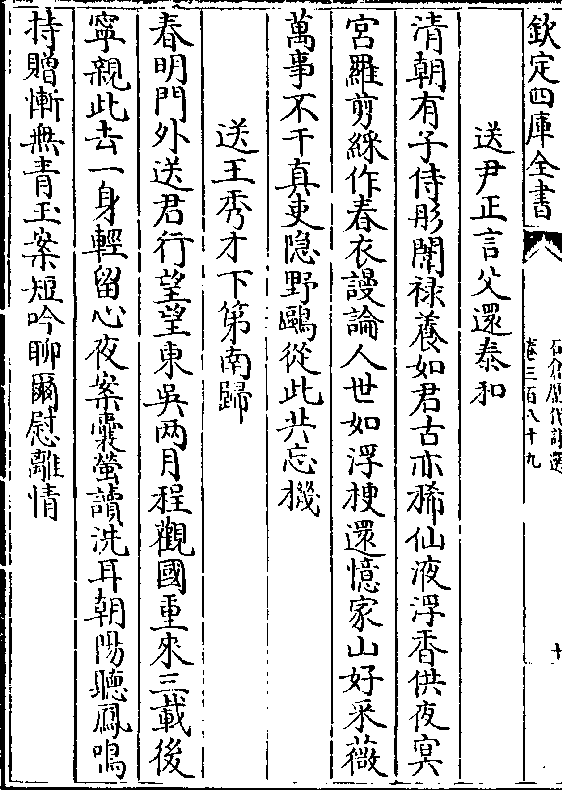 欽定四庫全書
石倉歷代詩選
卷三百八十九
十
送尹正言父還泰和
清朝有子侍彤闈祿養如君古亦稀仙液浮香供夜㝠
宮羅剪綵作春衣謾論人世如浮梗還憶家山好采薇
萬事不干真吏隐野鷗從此共忘機
送王秀才下第南歸
春明門外送君行望望東吳两月程觀國重來三載後
寧親此去一身輕留心夜案囊螢讀洗耳朝陽聽鳳鳴
持贈慚無青玉案短吟聊爾慰離情